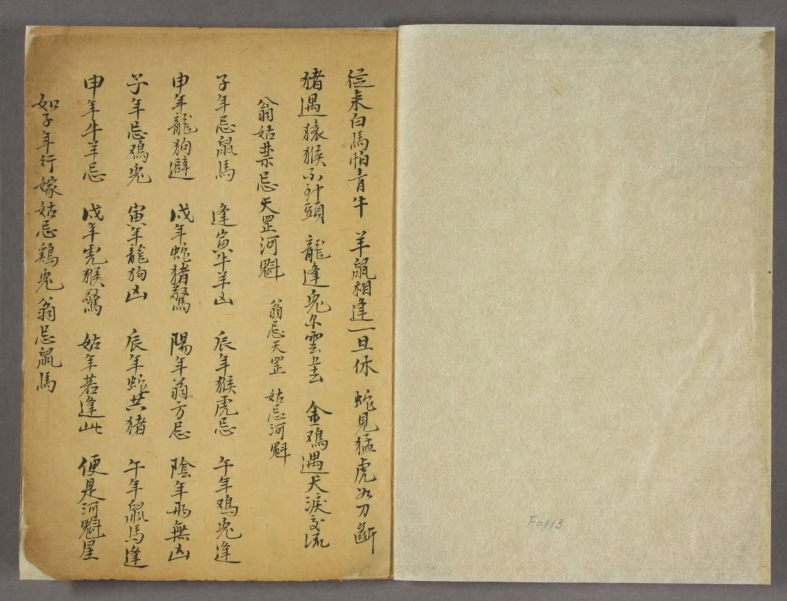 從来白馬怕青牛 羊鼠相逢一旦休 蛇見猛虎如刀斷
猪遇猿猴不到頭 龍逢兎 雲上去 金鳮遇犬淚交流
翁姑禁忌天罡河魁 翁忌天罡 姑忌河魁
子年忌鼠馬 逢寅牛羊凶 辰年猴虎忌 午年鳮兎逢
申年龍狗避 戌年蛇猪驚 陽年翁方忌 陰年 無凶
子年忌鳮兎 寅年龍狗凶 辰年蛇共猪 午年鼠馬逢
申年牛羊忌 戌年虎猴驚 姑年若逢此 便是河魁星
如子年行嫁姑忌鷄兎翁忌鼠馬
F0113